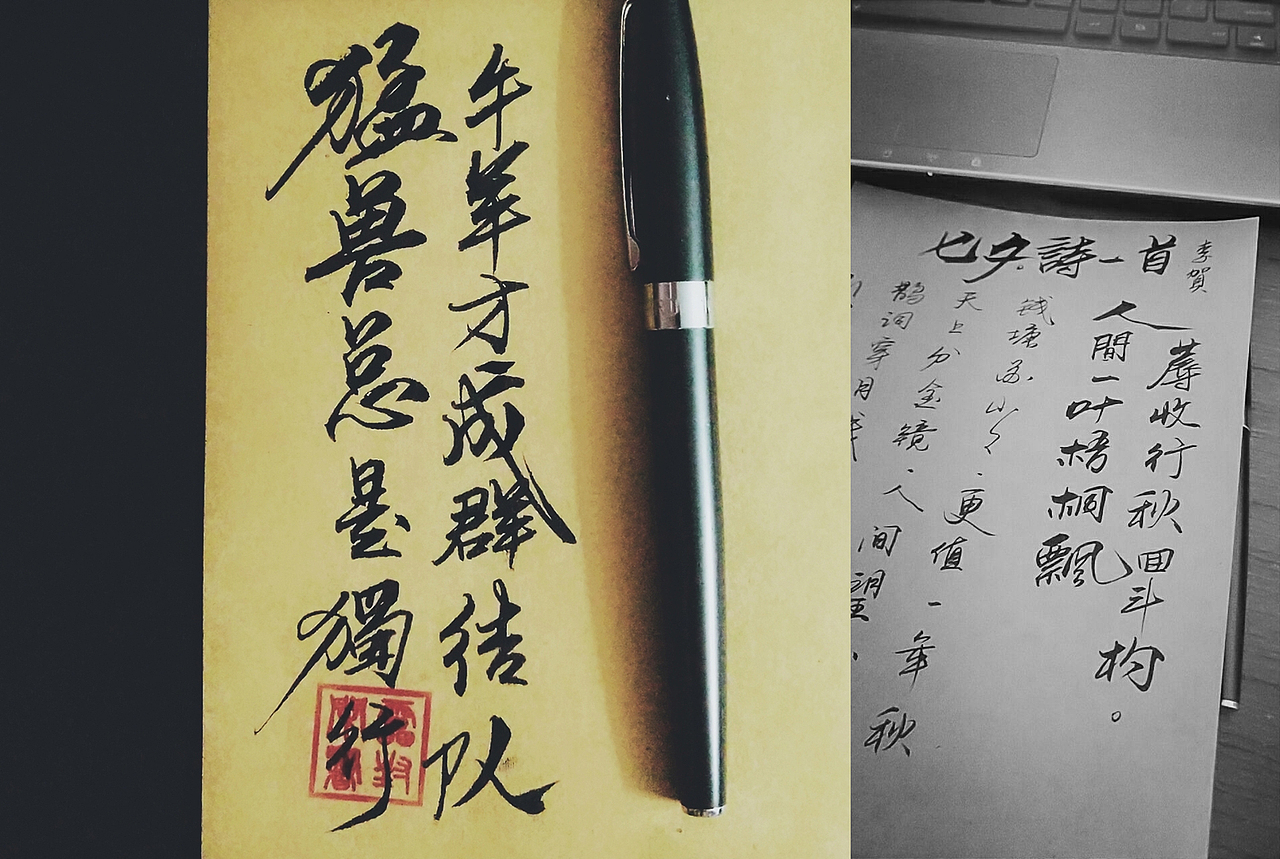 猛兽总是獨行
牛羊才成群结队
七夕.詩一首
李賀
鹊词穿月
天上分金镜.人间望
钱塘苏小小.更值一年秋
人間一叶梧桐飄
蓐收行秋回斗杓。